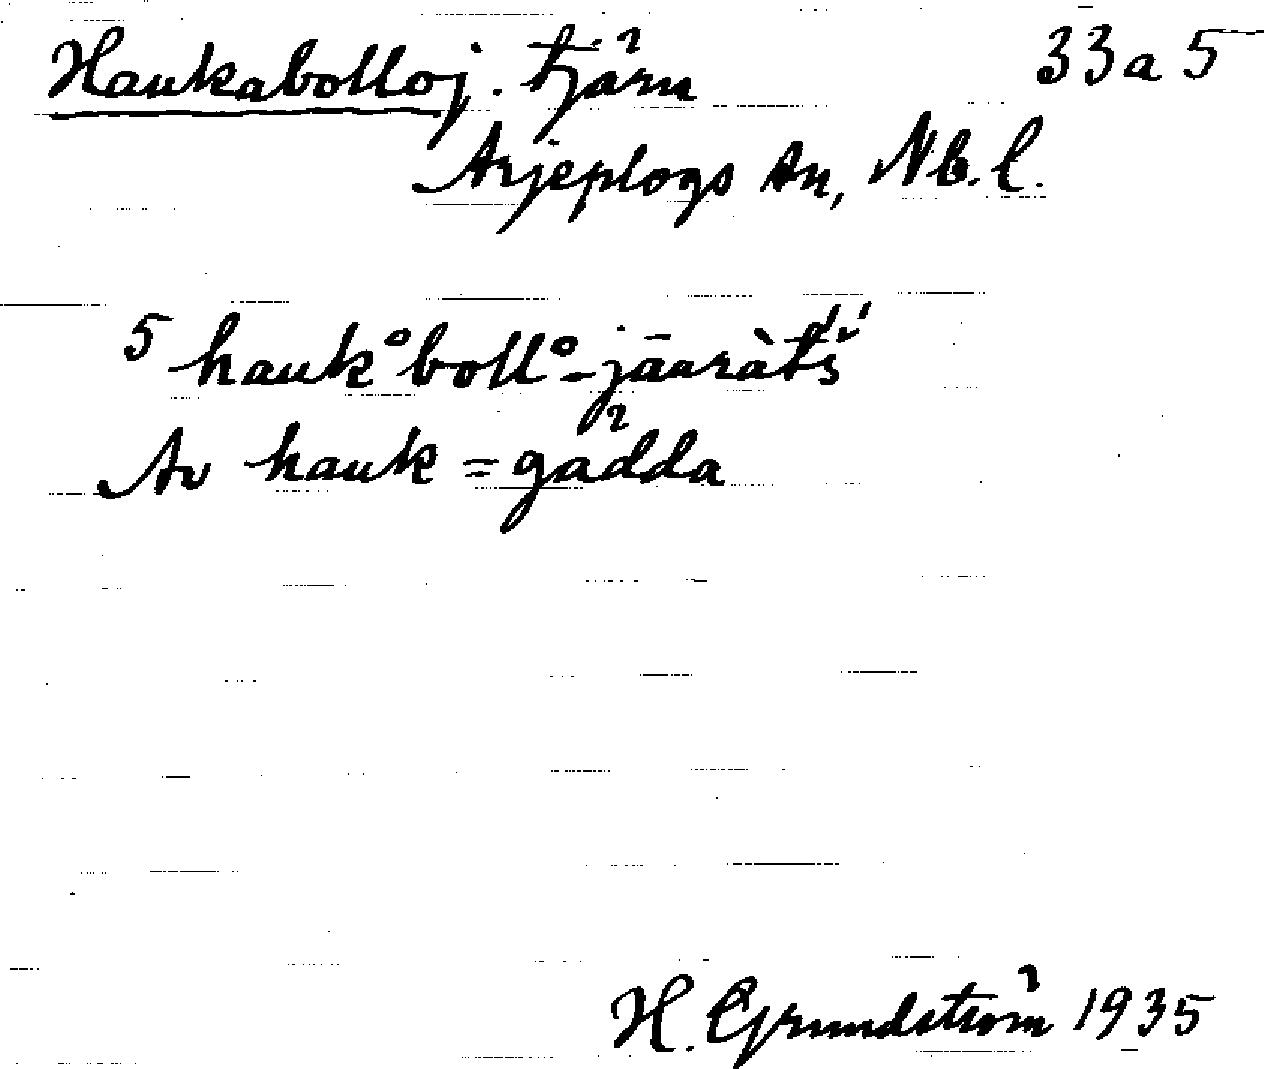 Haukabolloj. tjärn 33a5
Arjeplogs sn, Nb.l.
5 hauk°boll°-jāuràt́š́
Av hauk = gädda
H. Grundström 1935